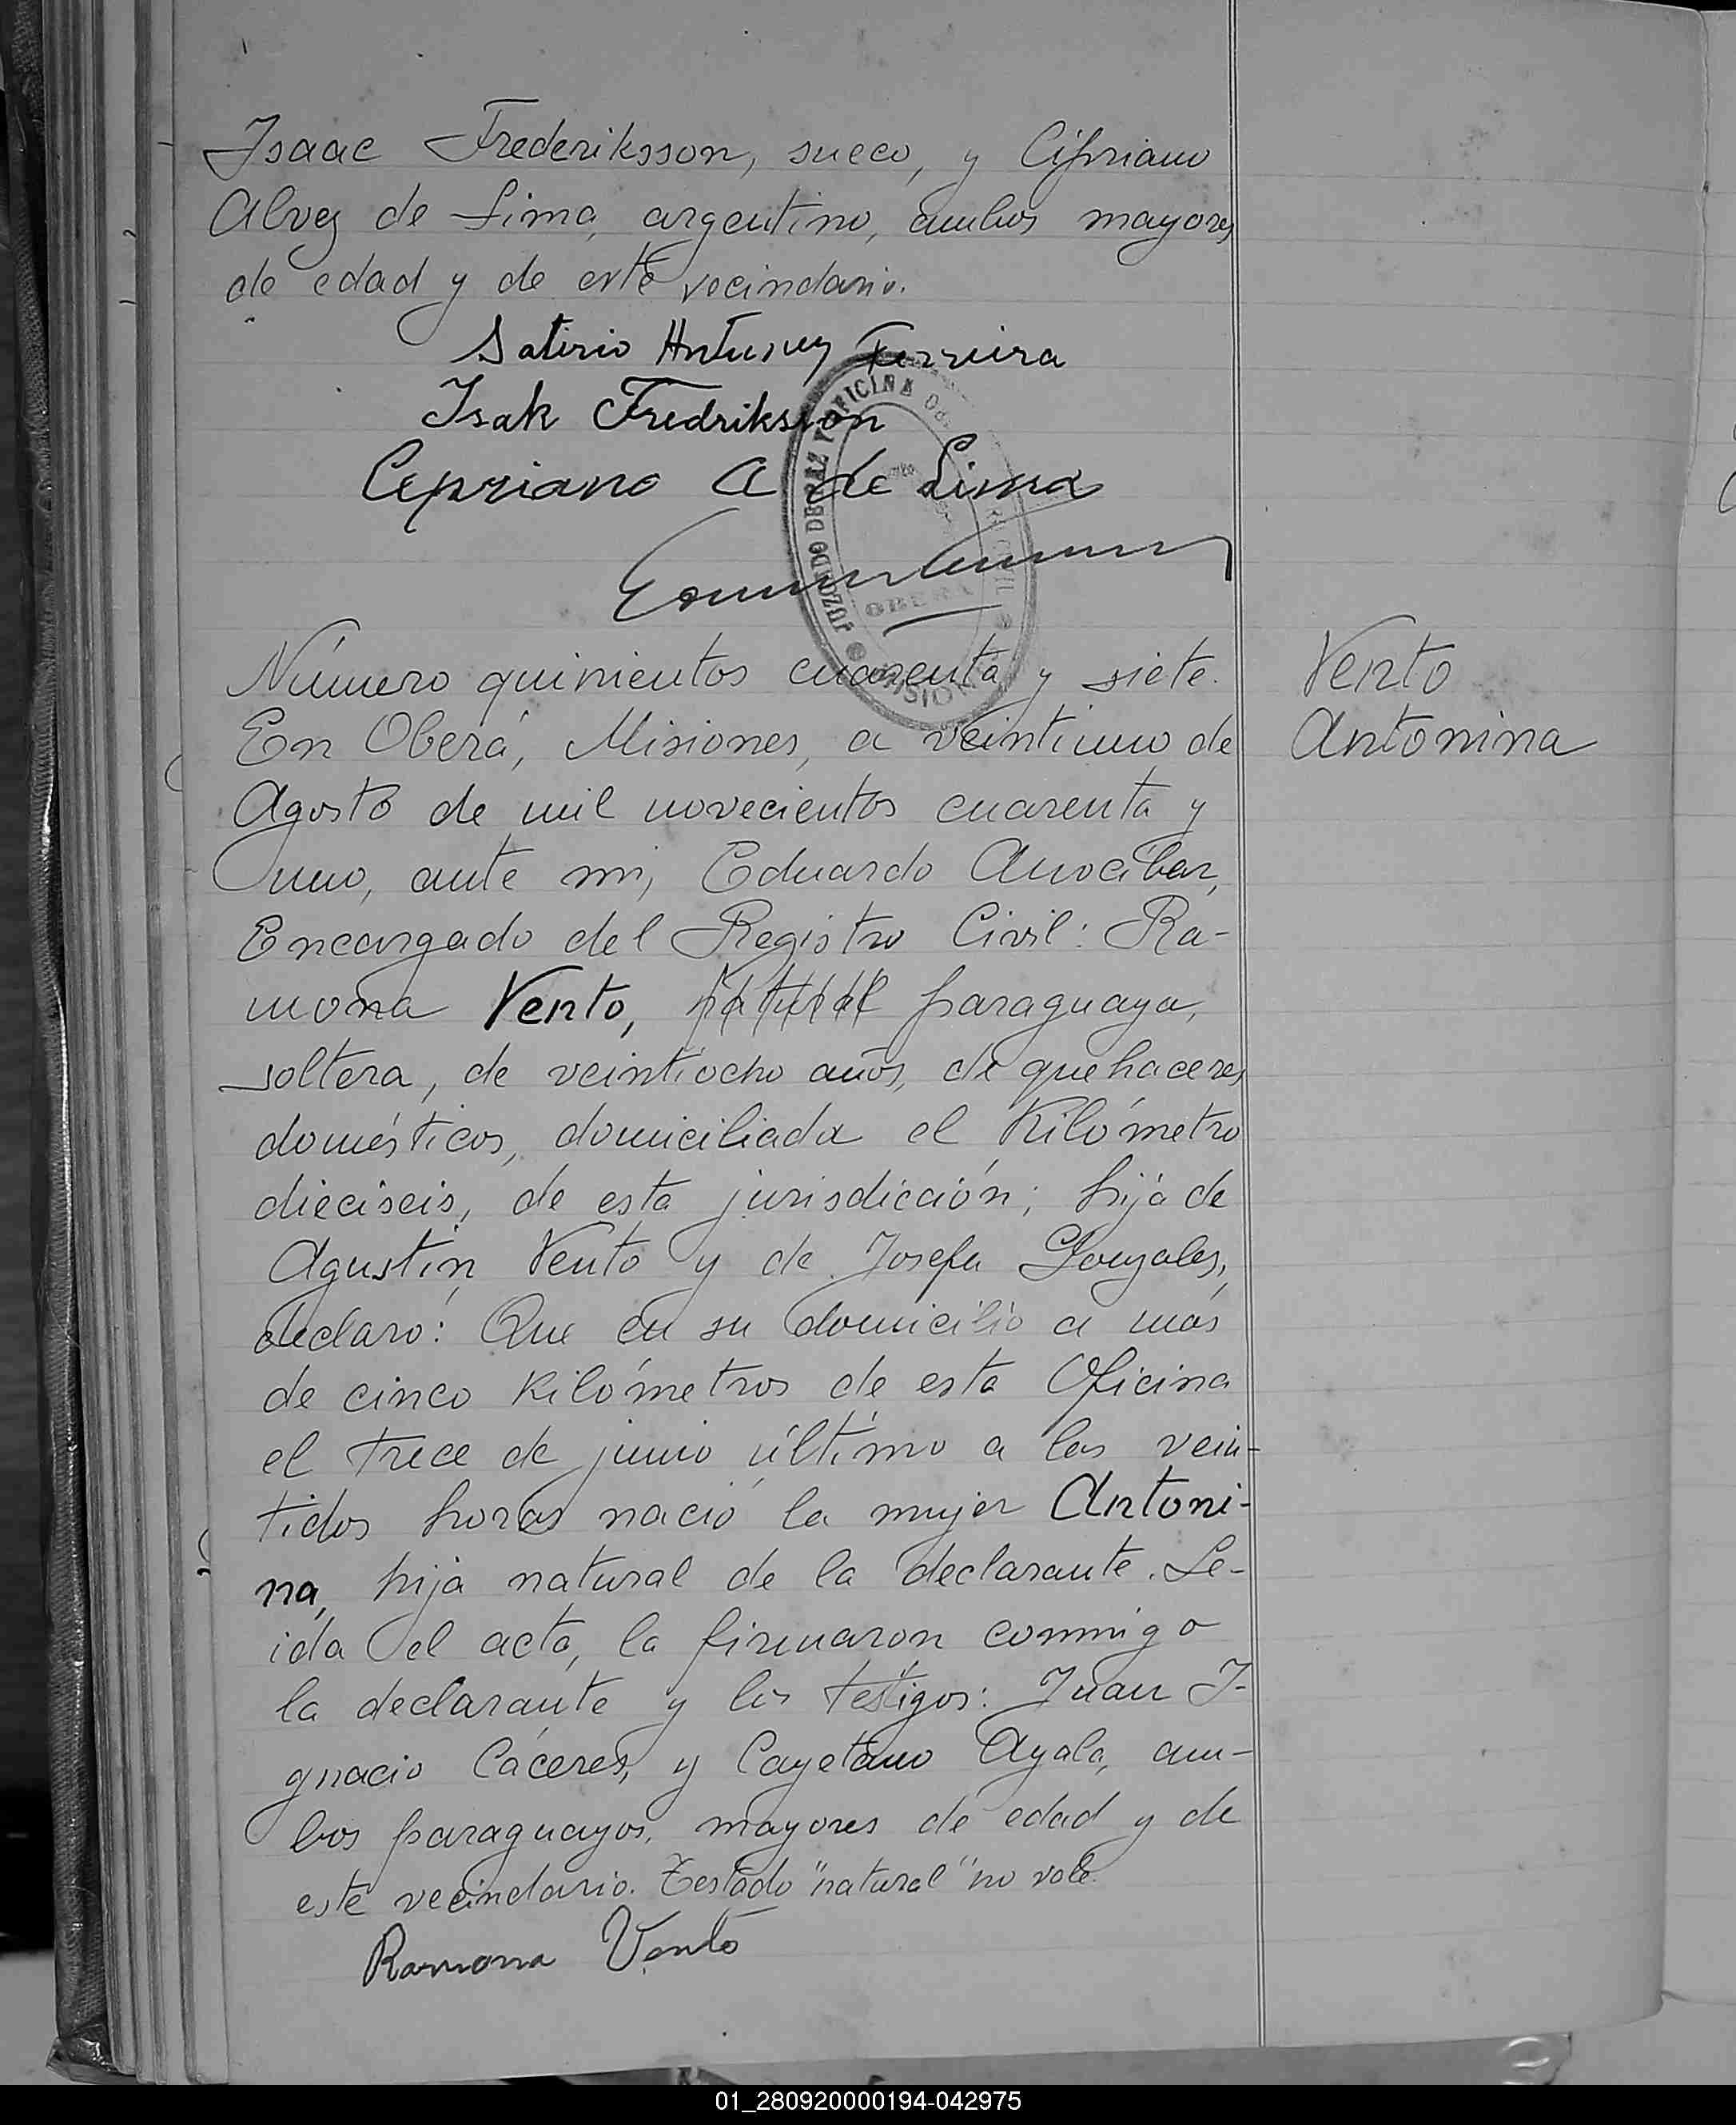 Isaac Frederiksson, sueco, y Cipriano
Alvez de Lima, argentino, ambos mayores
de edad y de este vecindario.
Satirio Antunez Ferreira
Isak Fredriksson
Cipriano A de Lima
JUZGADO DE PAZ Y OFICINA DEL
OBERA
MISIONES
Número quinientos cuarenta y siete.
Vento
Antonina
En Oberá, Misiones, a veintiuno de
Agosto de mil novecientos cuarenta y
uno, ante mi, Eduardo Anocibar,
Encargado del Registro Civil: Ra-
mona Vento, natural paraguaya,
soltera, de veintiocho años, de quehaceres
domésticos, domiciliada el Kilómetro
dieciseis, de esta jurisdicción; hija de
Agustin Vento y de Josefa Gonzales,
declaró: Que en su domicilio a más
de cinco Kilómetros de esta Oficina
el trece de junio último a las vein-
tidos horas nació la mujer Antoni-
na, hija natural de la declarante. Le-
ida el acta, la firmaron conmigo
la declarante y los testigos: Juan I-
gnacio Cáceres, y Cayetano Ayala, am-
bos paraguayos, mayores de edad y de
este vecindario. Testado "natural" no vale.
Ramona Vento
01_280920000194-042975